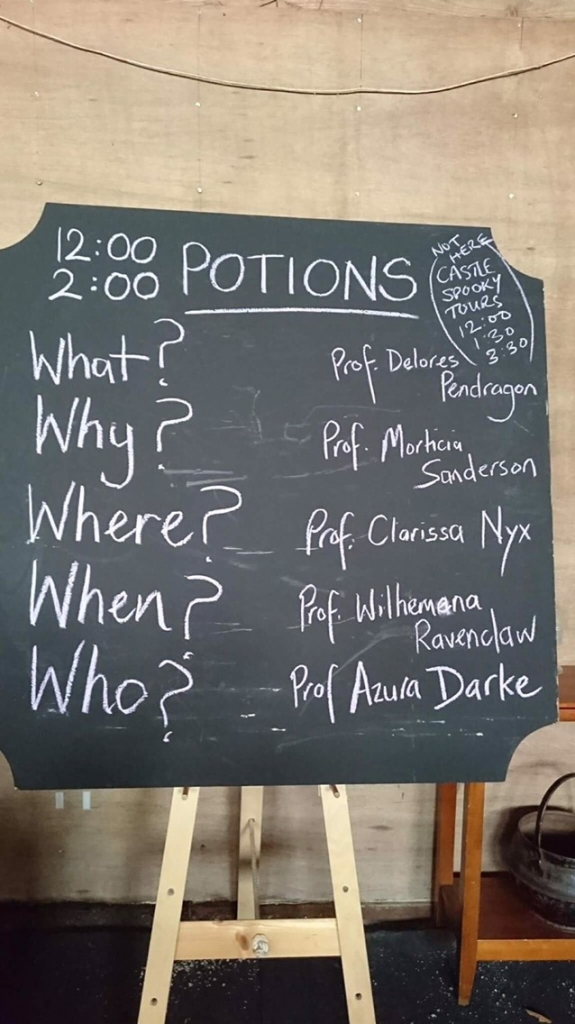 12:00
2:00
POTIONS
NOT
HERE
CASTLE
SPOOKY
TOURS
12:00
1:30
3:30
What?
Prof. Delores
Pendragon
Why?
Prof. Morticia
Sanderson
Where?
Prof. Clarissa Nyx
When?
Prof. Wilhemena
Ravenclaw
Who?
Prof Azura Darke